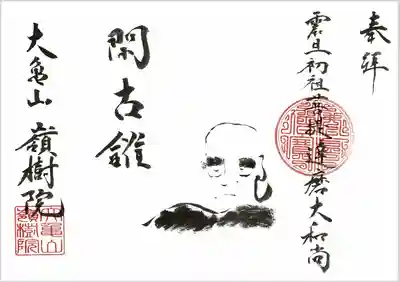 奉拝
震旦初祖菩提達磨大和尚
閑古錐
大亀山
嶺樹院
大亀山
嶺樹院